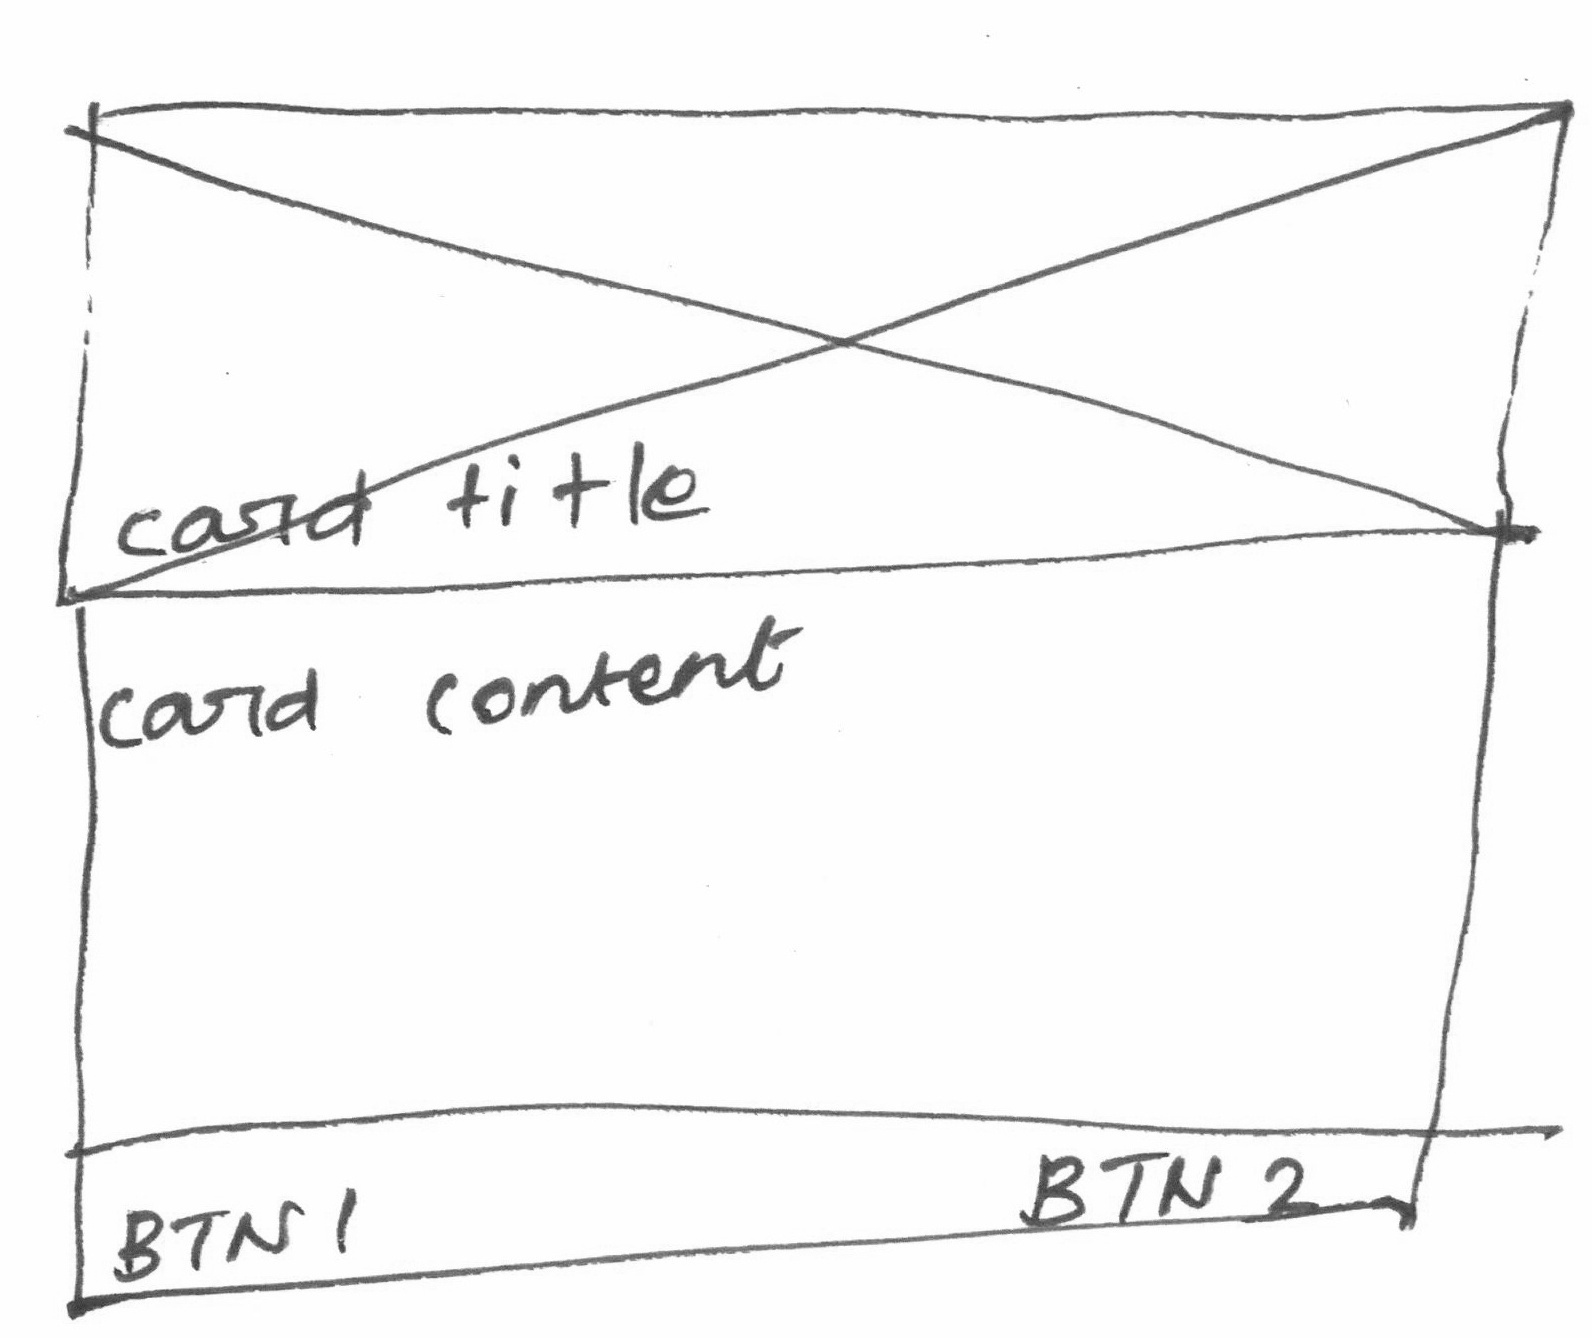 card title
card content
BTN 1
BTN 2